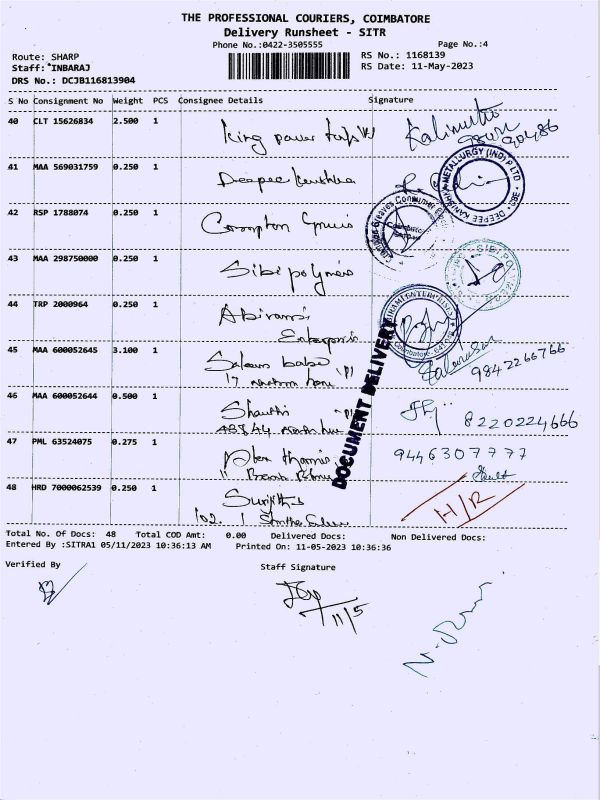 THE PROFESSIONAL COURIERS, COIMBATORE
Delivery Runsheet - SITR
Phone No.:0422-3505555 Page No.:4
Route: SHARP RS No.: 1168139
Staff: INBARAJ RS Date: 11-May-2023
DRS No.: DCJB116813904
S No Consignment No Weight PCS Consignee Details Signature
40 CLT 15626834 2.500 1 King power
41 MAA 569031759 0.250 1 Deepee Kanishka
METALLURGY (IND) P LTD
DEEPEE KANISHKA
42 RSP 1788074 0.250 1 Crompton Greaves
Crompton Greaves Consumer
43 MAA 298750000 0.250 1 Sibi polymers
44 TRP 2000964 0.250 1 Abirami
Enterprises
ABIRAMI ENTERPRISES
Coimbatore
45 MAA 600052645 3.100 1 Salem babu
17 9842266766
46 MAA 600052644 0.500 1 Shanthi 8220224666
47 PML 63524075 0.275 1 Alex Thomas 9446307777
48 HRD 7000062539 0.250 1 H/R
102.
DOCUMENT DELIVERY
Total No. Of Docs: 48 Total COD Amt: 0.00 Delivered Docs: Non Delivered Docs:
Entered By :SITRA1 05/11/2023 10:36:13 AM Printed On: 11-05-2023 10:36:36
Verified By Staff Signature
11/5